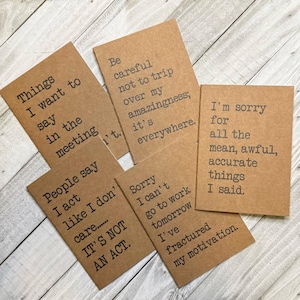 Things
I want to
say
in the
meeting
t.
Be
careful
not to trip
over my
amazingness;
it's
everywhere.
I'm sorry
for
all the
mean, awful,
accurate
things
I said.
People say
I act
like I don'
care.....
IT'S NOT
AN ACT.
Sorry
I can't
go to work
tomorrow
I've
fractured
my motivation.